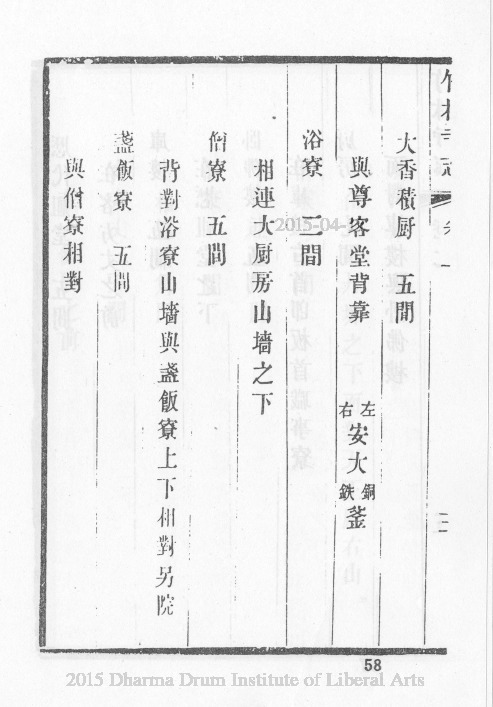 竹林寺志 卷一
大香積厨 五間
與尊客堂背靠 左右安大銅鉄釜
浴寮 三間
相連大厨房山墻之下
僧寮 五間
背對浴寮山墻與盞飯寮上下相對另院
盞飯寮 五間
與僧寮相對
58
2015-04-
2015 Dharma Drum Institute of Liberal Arts